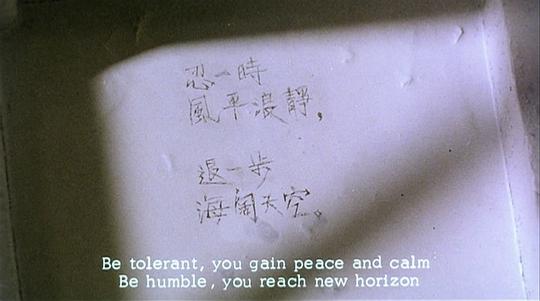 忍一時
風平浪靜,
退一步
海闊天空。
Be tolerant, you gain peace and calm
Be humble, you reach new horizon